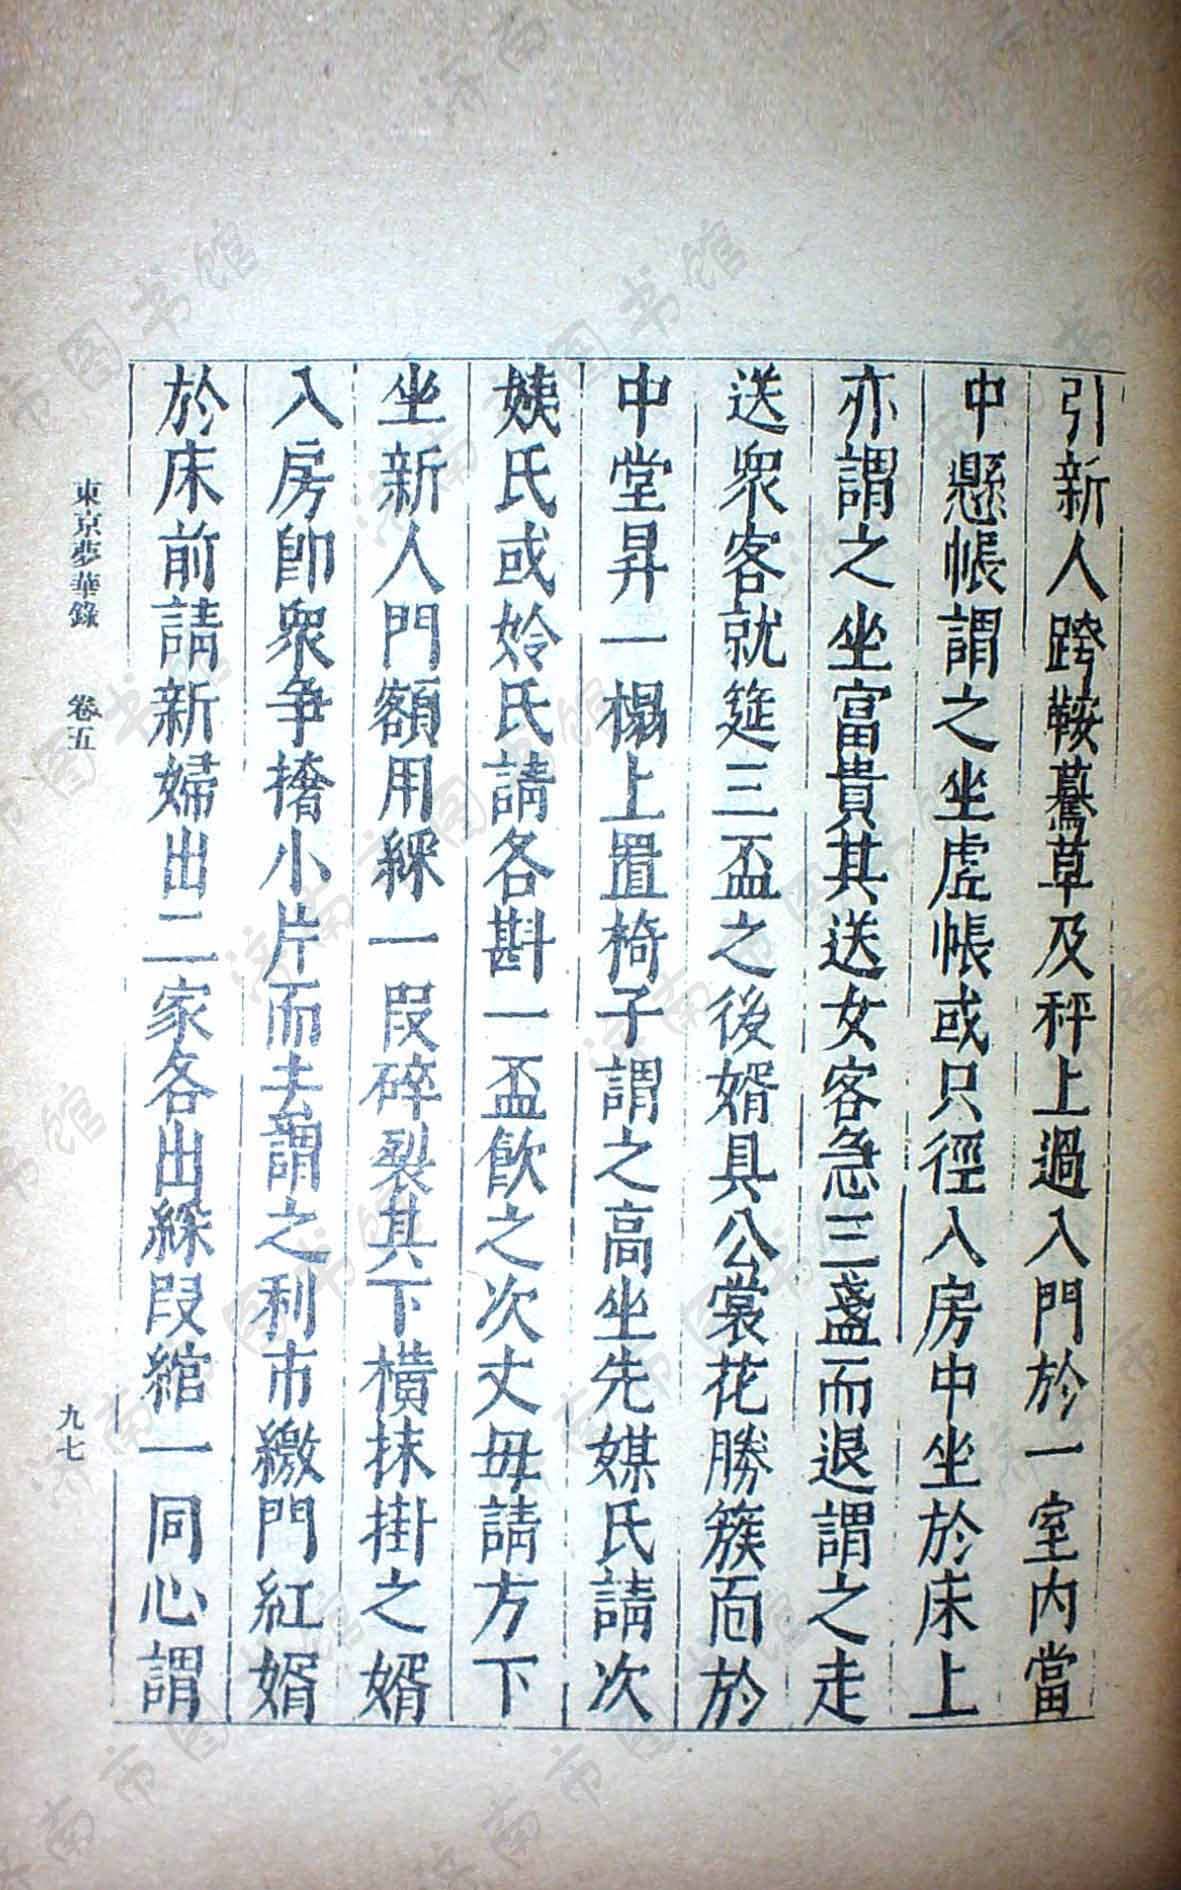 引新人跨鞍驀草及秤上過入門於一室内當
中懸帳謂之坐虛帳或只徑入房中坐於床上
亦謂之坐富貴其送女客急三盞而退謂之走
送衆客就筵三盃之後婿具公裳花勝簇面於
中堂昇一榻上置椅子謂之高坐先媒氏請次
姨氏或妗氏請各斟一盃飲之次丈母請方下
坐新人門額用綵一段碎裂其下橫抹掛之婿
入房卽衆争撦小片而去謂之利市繳門紅婿
於床前請新婦出二家各出綵段綰一同心謂
東京夢華錄 卷五
九七
济南市图书馆